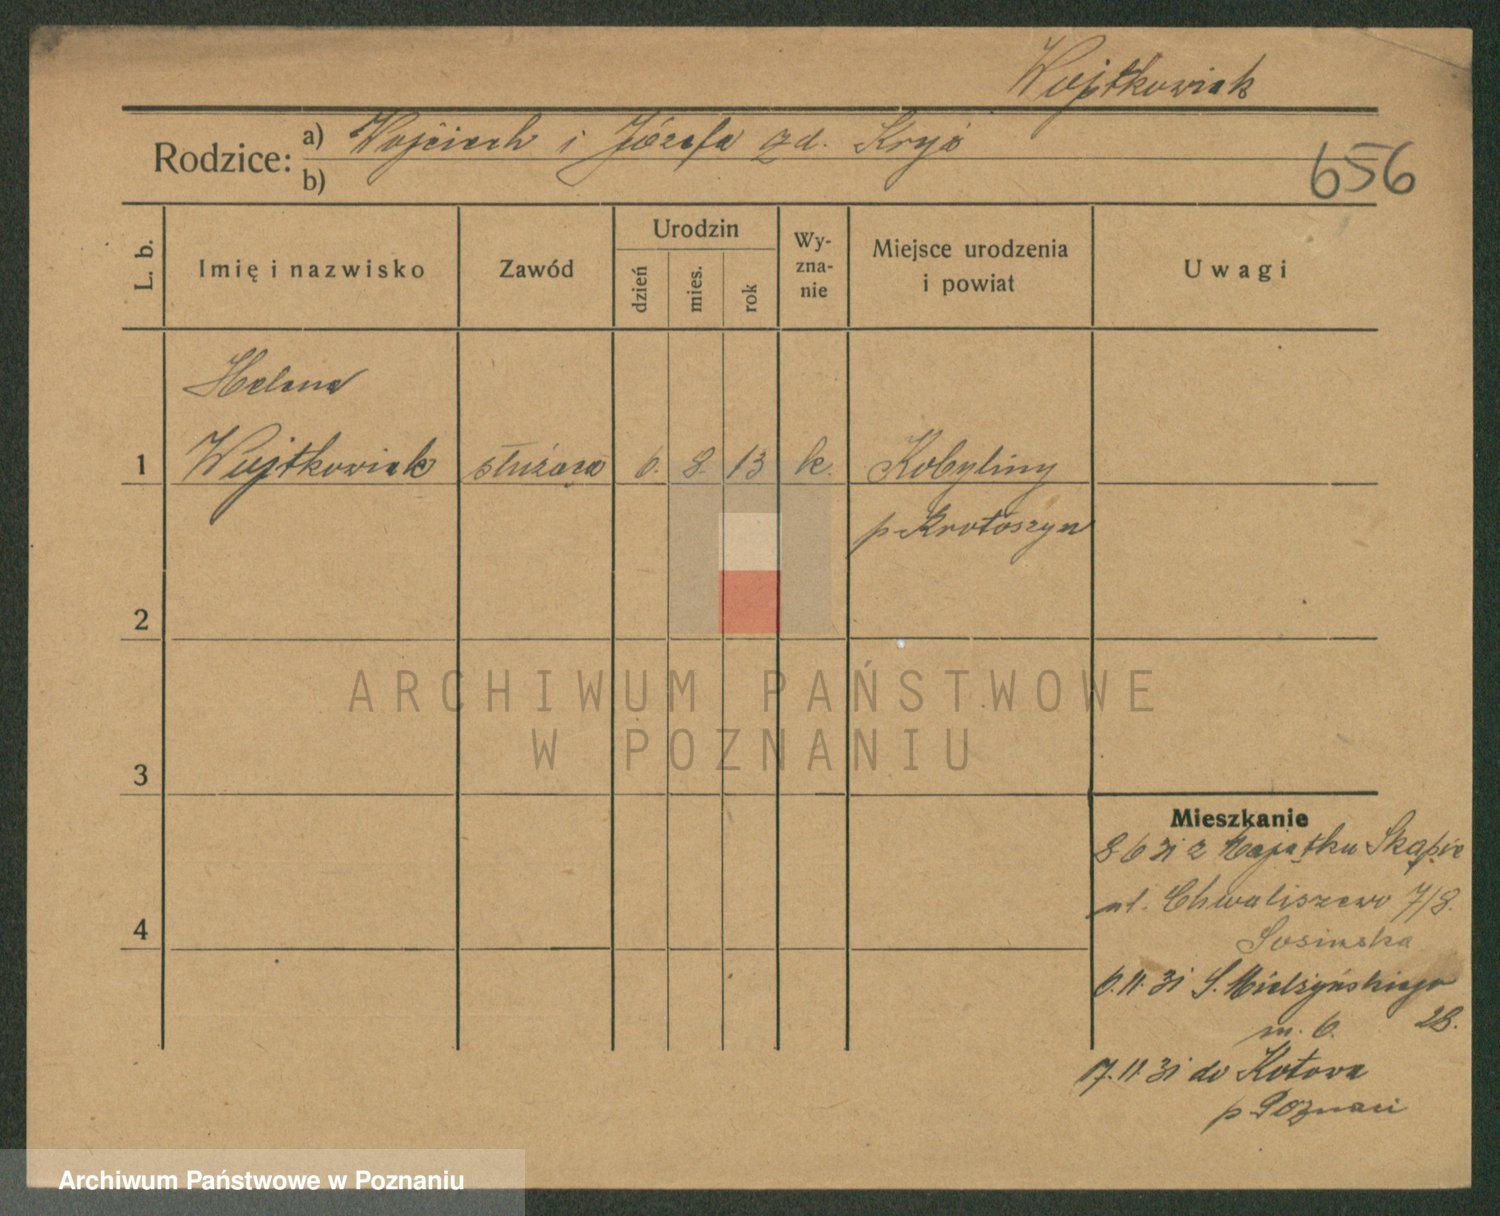 Wojtkowiak
Rodzice:
a) Wojciech i Józefa zd. Kryś
b)
656
L. b.
Imię i nazwisko
Zawód
Urodzin
dzień
mies.
rok
Wy-
zna-
nie
Miejsce urodzenia
i powiat
Uwagi
Helena
1 Wojtkowiak służąca 6. 8. 13 k. Kobyliny
p Krotoszyn
2
3
4
ARCHIWUM PAŃSTWOWE
W POZNANIU
Mieszkanie
8 6 31 z Majątku
ul. Chwaliszewo 7/8.
Sosinska
6.11.31 S. Mielżyńskiego
m. 6. 28.
17.11.31 do Kotowa
p Poznań
Archiwum Państwowe w Poznaniu